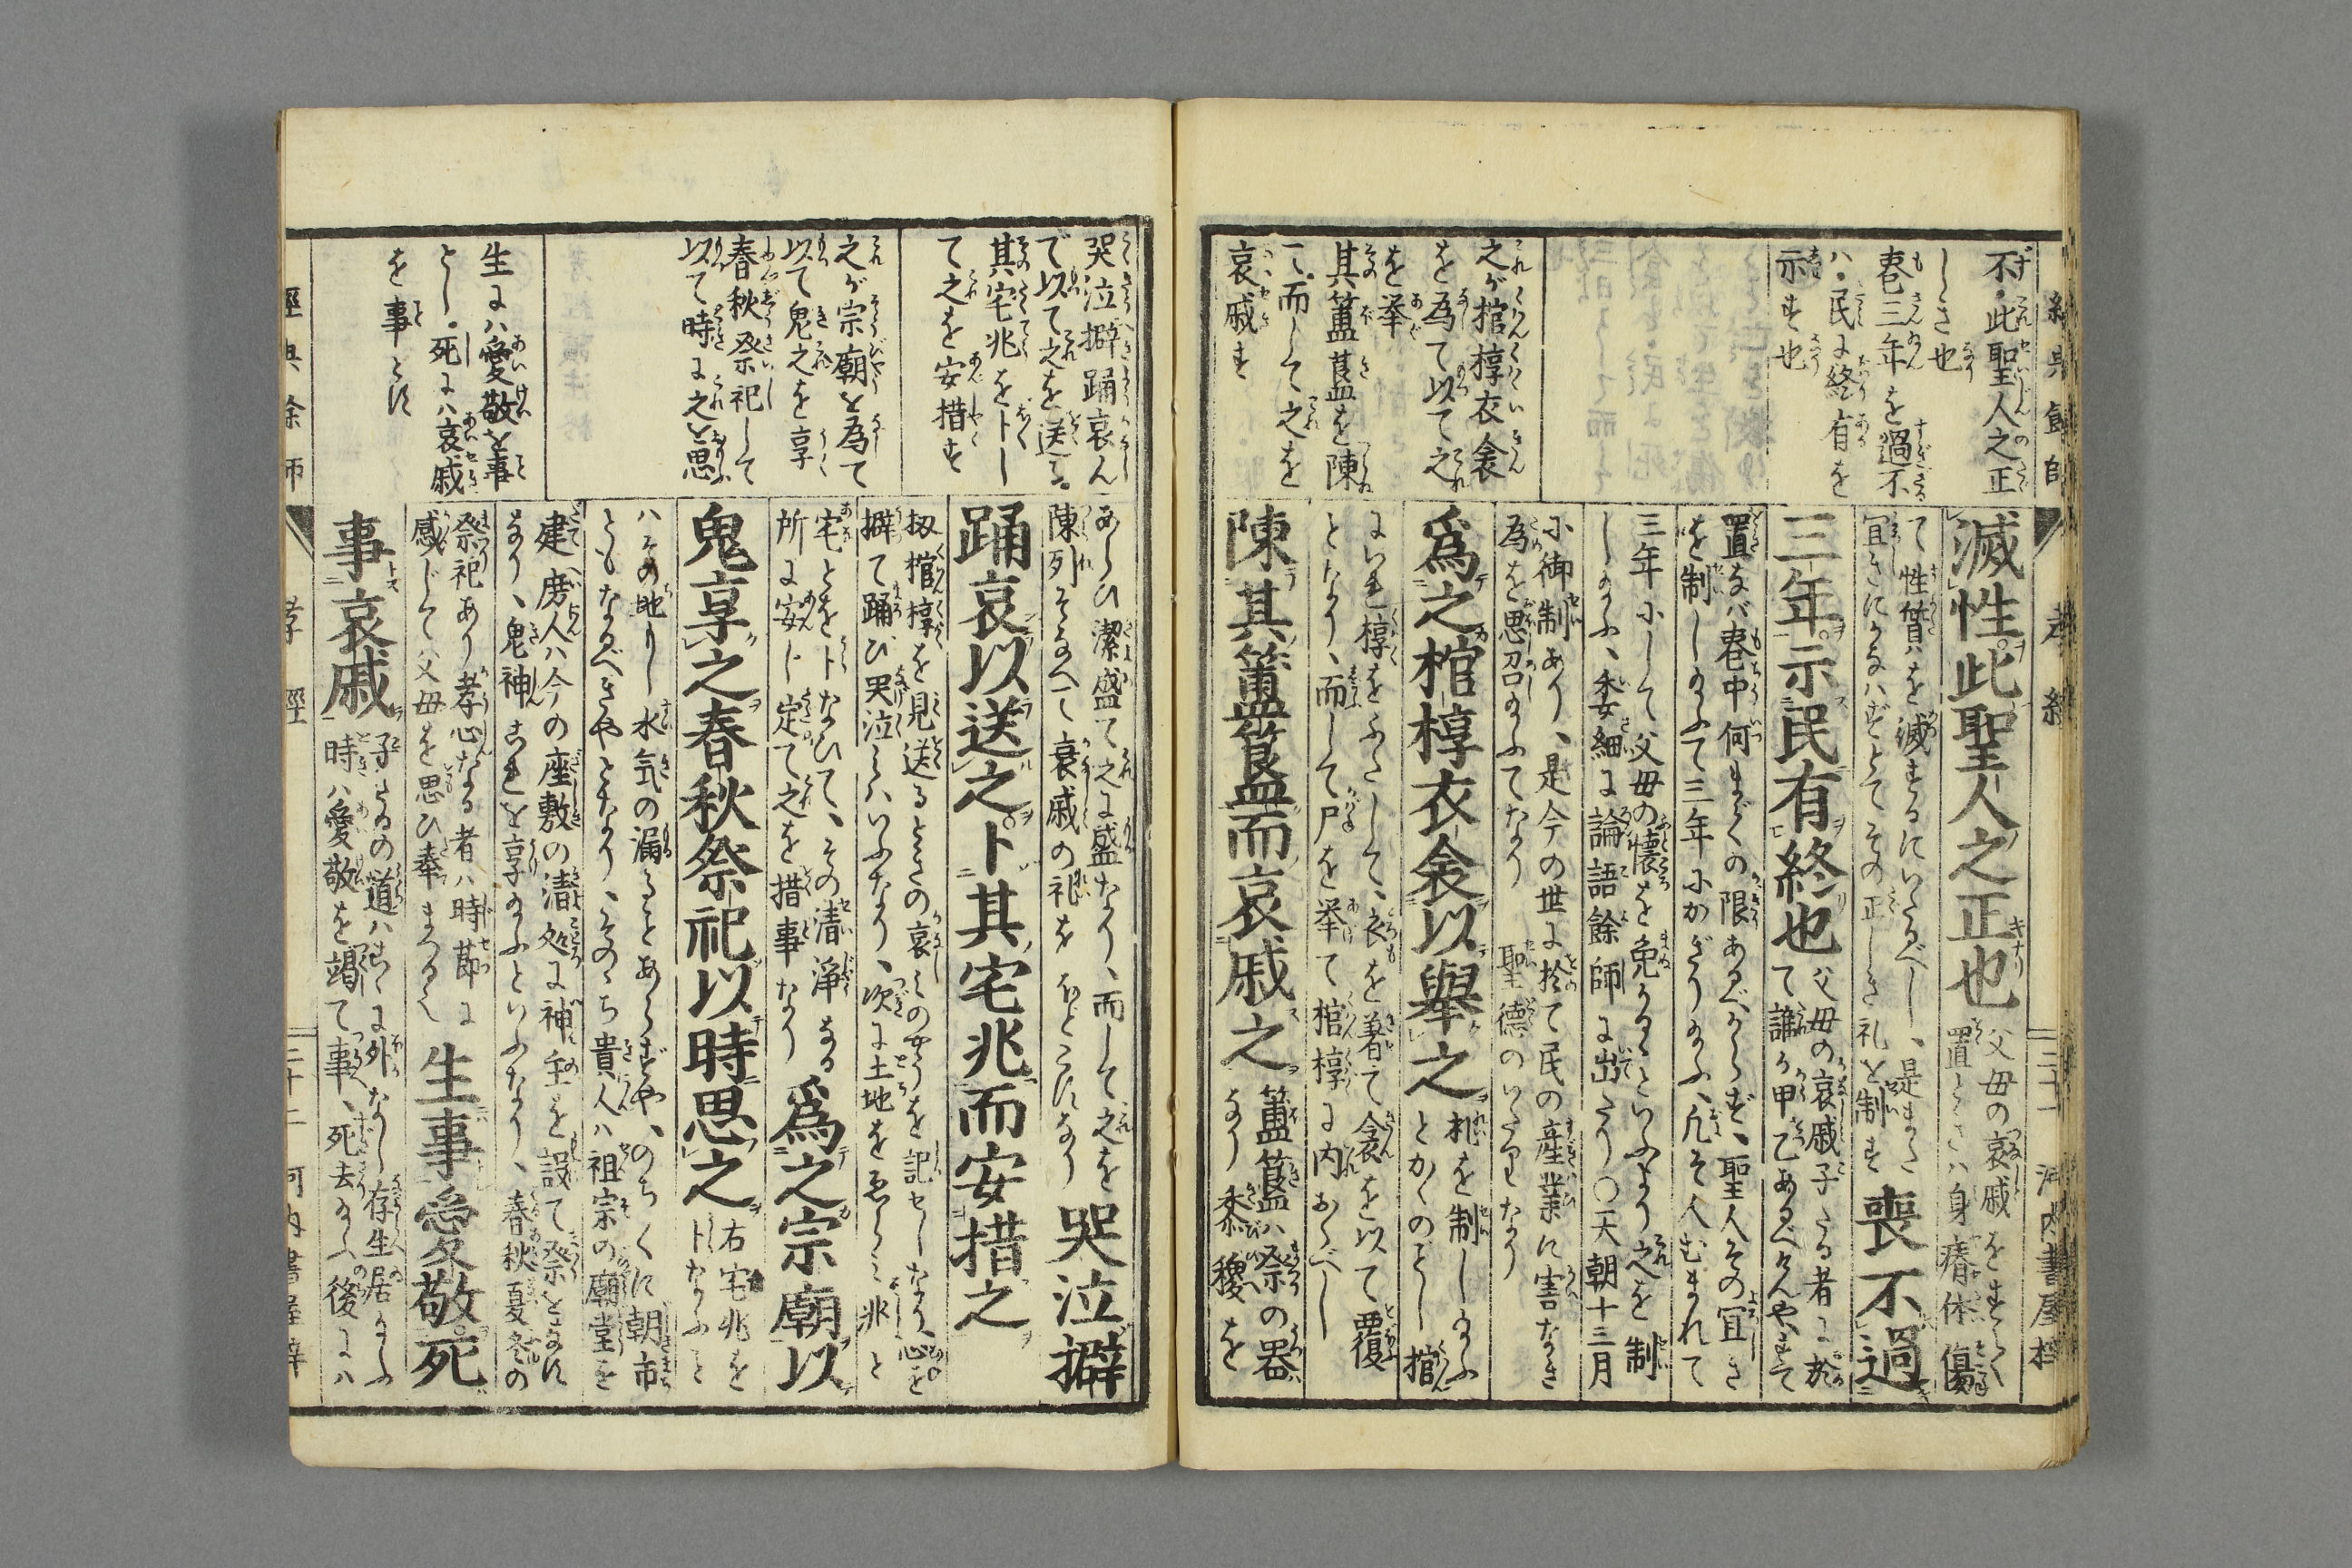 經典餘師
孝經
二十一
河内書屋梓
不・此聖人之正
しき也
喪三年を過不
ハ・民に終有を
示す也
之が棺椁衣衾
を為て以て之
を挙
其簠簋を陳
て・而して之を
哀戚す
滅性此聖人之正也
父母の哀戚をすとく
置ときハ身瘠体傷
て性質を滅するにいたるべし、是また
宜きにかなハずとてその正しき礼を制す
喪不過
三年示民有終也
父母の哀戚子たる者に於
て誰か甲乙あるべけんや、すて
置なバ喪中何まぐの限あるべからず、聖人その宜き
を制し給ふて三年にかぎり給ふ、凡そ人むまれて
三年にして父母の懐を免かるゝといふより之を制
し給ふ、委細に論語餘師に出たり○天朝十三月
に御制あり、是今の世に於て民の産業に害なき
為を思召給ふてなり 聖徳のいたりなり
爲之棺椁衣衾以舉之
礼を制し給ふ
とかくのそし棺
にいれ椁をふたして、衣を着て衾を以て覆
となり、而して尸を挙て棺椁に内おくべし
陳其簠簋而哀戚之
簠簋ハ祭の器
なり黍稷を
哭泣擗踊哀ん
で以て之を送る。
其宅兆を卜し
て之を安措す
之が宗廟を為て
以て鬼之を享
春秋祭祀して
以て時に之を思
生にハ愛敬を事
とし・死にハ哀戚
を事とす
あらひ潔盛て之に盛なり、而して之を
陳列そなへて哀戚の祀をおどこすなり
哭泣擗
踊哀以送之卜其宅兆而安措之
扨棺椁を見送るときの哀ミのやうを記せしなり、心を
擗て踊ひ哭泣くハいふなり、次に土地をゑらミ兆と
宅とを卜なひて、その清浄なる
所に安じ定て之を措事なり
爲之宗廟以
鬼享之春秋祭祀以時思之
右宅兆を
卜なふと
ハその地もし水気の漏ることあらずや、のちくに朝市
ともなるべきやとなり、そのゝち貴人ハ祖宗の廟堂を
建、庶人ハ今の座敷の清処に神主を設て祭をなす
なり、鬼神これを享給ふといふなり、春秋夏冬の
祭祀あり孝心なる者ハ時節に
感じてハ父母を思ひ奉まつる也
生事愛敬死
事哀戚
子たるの道ハこゝに外なし存生居給ふ
時ハ愛敬を竭て事、死去給ふ後にハ
經典餘師
孝經
二十二
河内書屋梓